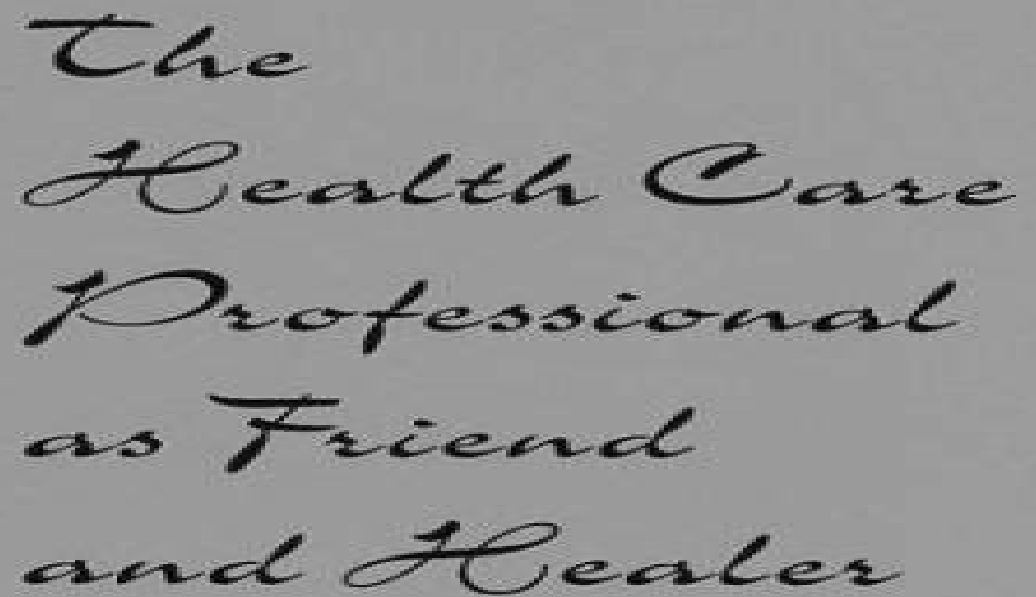 The
Health Care
Professional
as Friend
and Healer